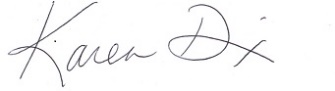 Karen Dix